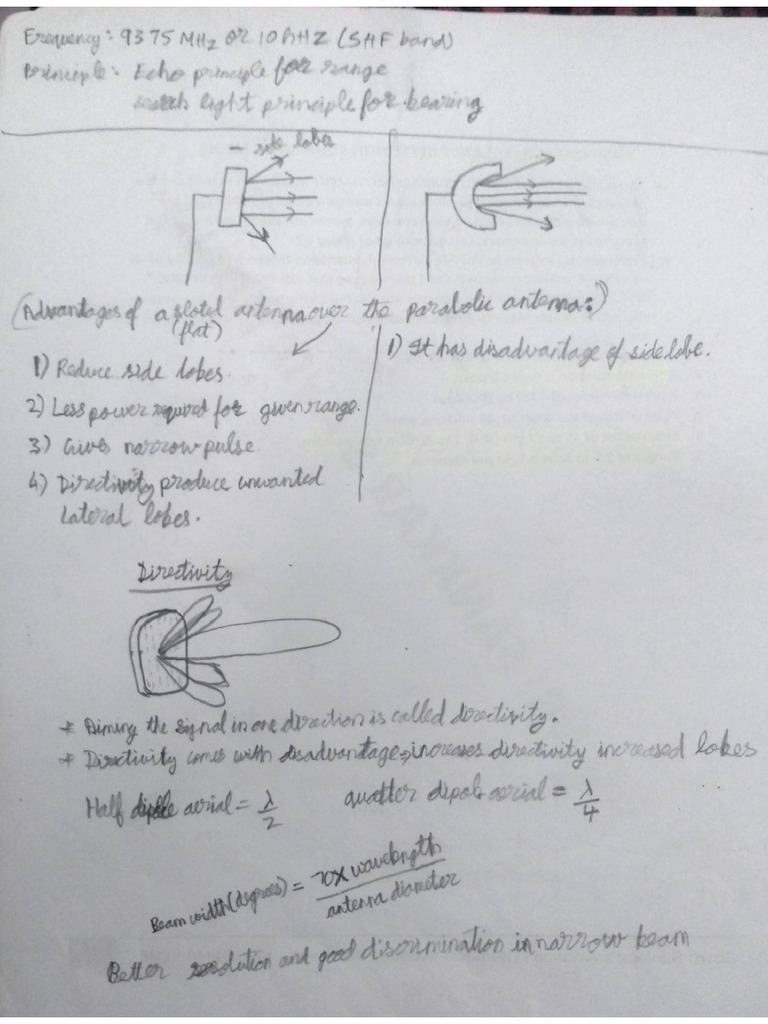 Frequency: 9375 MHz or 10 GHZ (SHF band)
Principle: Echo principle for range
search light principle for bearing
- side lobes
(Advantages of a sloted antenna over the parabolic antenna:)
(flat)
1) Reduce side lobes.
1) It has disadvantage of side lobe.
2) Less power required for given range.
3) Gives narrow pulse
4) Directivity produce unwanted
Lateral lobes.
Directivity
* Aiming the signal in one direction is called directivity.
* Directivity comes with disadvantage, increases directivity increased lobes
Half dipole aerial = λ/2 quatter dipole aerial = λ/4
Beam width (degrees) = 70 x wavelength / antenna diameter
Better resolution and good discrimination in narrow beam